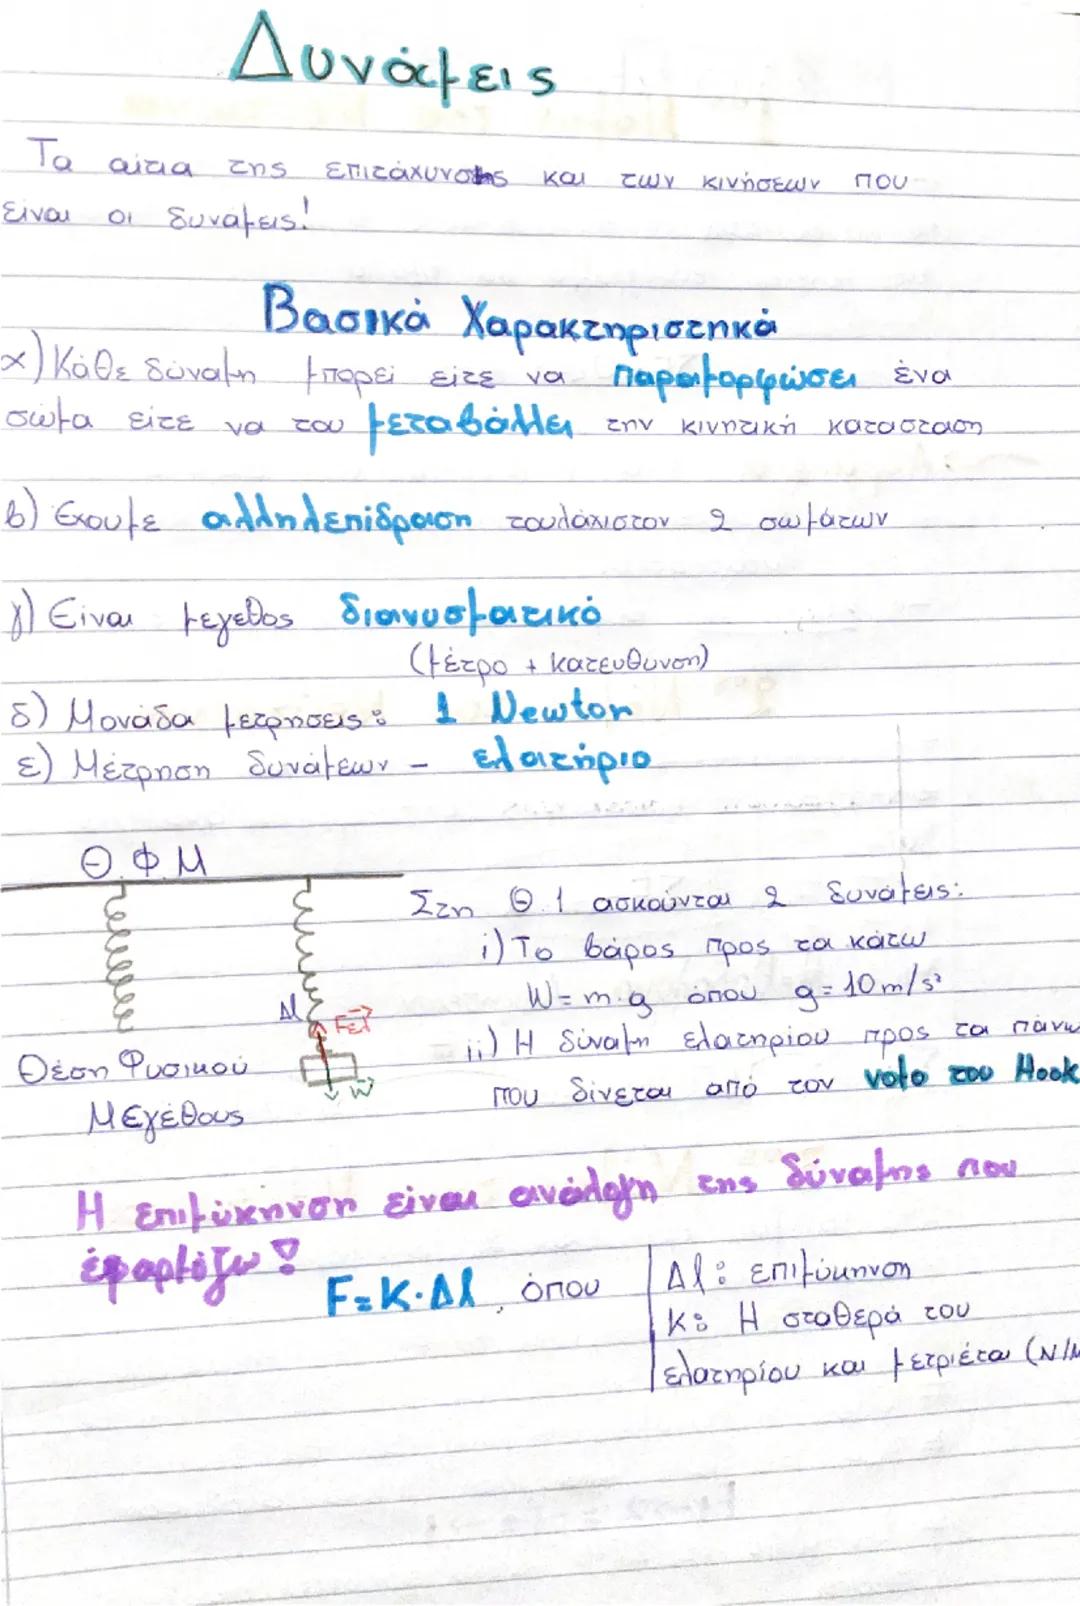 Δυνάμεις
Τα αίτια της επιτάχυνσης και των κινήσεων που
είναι οι δυνάμεις!
Βασικά Χαρακτηριστηκά
α) Κάθε δύναμη μπορεί είτε να παραμορφώσει ένα
σώμα είτε να του μεταβάλλει την κινητική κατάσταση
β) Έχουμε αλληλεπίδραση τουλάχιστον 2 σωμάτων
γ) Είναι μεγεθος διανυσματικό
(μέτρο + κατευθυνση)
δ) Μονάδα μετρησεις: 1 Newton
ε) Μέτρηση δυνάμεων - ελατήριο
Θ.Φ.Μ
Στη Θ.1 ασκούνται 2 δυνάμεις:
i) Το βάρος προς τα κάτω
W = m.g όπου g = 10 m/s²
Δl
Fελ
ii) Η δύναμη ελατηρίου προς τα πάνω
Θέση Φυσικού
W
που δίνεται από τον νομο του Hook
Μεγέθους
Η επιμύκηνση είναι ανάλογη της δύναμης που
έφαρμόζω!
F=K·Δl, όπου
Δl: επιμύκηνση
K: Η σταθερά του
ελατηρίου και μετριέται (N/m